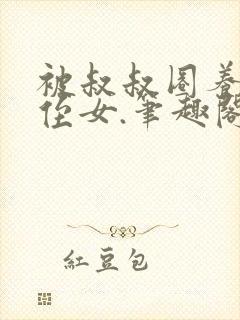 被叔叔圈养
侄女.笔趣阁
紅豆包